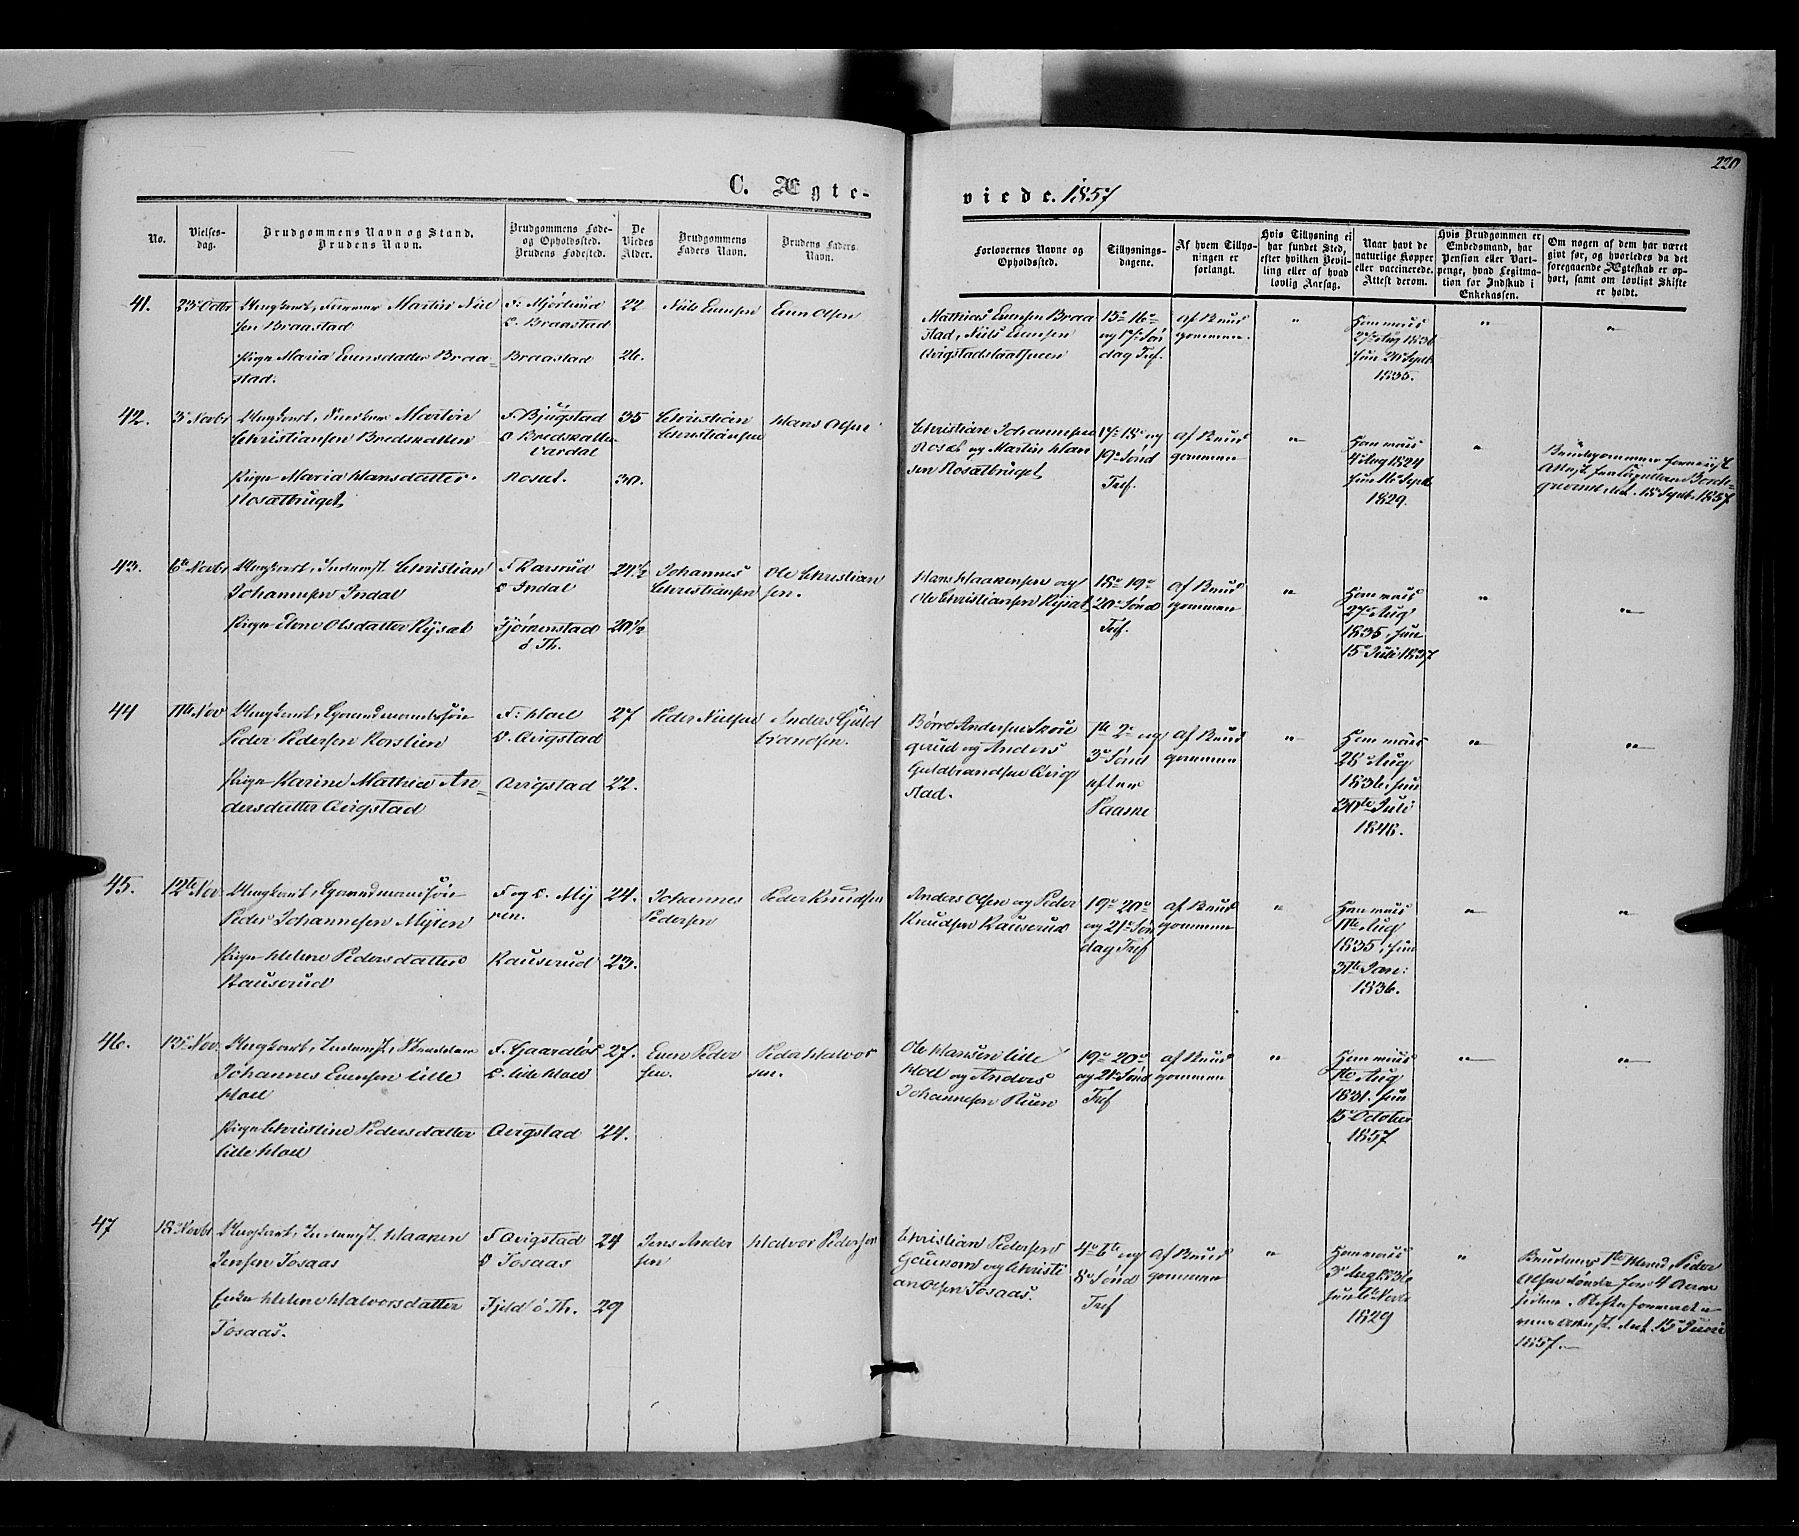 220
C. Ægte-
viede. 1857
No.
Vielses-
dag.
Brudgommens Navn og Stand.
Brudens Navn.
Brudgommens Føde-
og Opholdssted.
Brudens Fødested.
De
Viedes
Alder.
Brudgommens
Faders Navn.
Brudens Faders
Navn.
Forlovernes Navne og
Opholdssted.
Tillysnings-
dagene.
Af hvem Tillys-
ningen er
forlangt.
Hvis Tillysning ei
har fundet Sted,
efter hvilken Bevil-
ling eller af hvad
lovlig Aarsag.
Naar havt de
naturlige Kopper
eller vaccinerede.
Attest derom.
Hvis Brudgommen er
Embedsmand, har
Pension eller Vart-
penge, hvad Legitima-
tion for Indskud i
Enkekassen.
Om nogen af dem har været
givt før, og hvorledes da det
foregaaende Ægteskab er op-
hørt, samt om lovligt Skifte
er holdt.
41.
23 Octbr
Ungkarl, Martin Niel
sen Braastad
Pige Maria Evensdatter Braa-
stad.
F. Mjørlund
O. Braastad
Braastad
22
26.
Niels Evensen
Even Olsen
Mathias Evensen Braa
stad, Niels Evensen
Avigstad
15de 16de
og 17de Søn
dag Tref.
af Brud
gommen.
"
Han
27de Aug 1836
hun 20 Septr
1835.
"
"
42.
3 Novbr
Ungkarl, Martin
Christiansen Bredskallen
Pige Maria Hansdatter
Rosælbruget
F. Bjugstad
O Bredskallen
Vardal
Rosæl.
35
30.
Christian
Christiansen
Hans Olsen
Christian Johannesen
Rosæl og Martin Han
sen Rosælbruget
17de 18de og
19de Sønd
Tref.
af Brud
gommen
"
Han
4 Aug 1824
hun 16 Septr
1829.
"
Brudgommen
Attest fra
15 Septr. 1857
43.
6te Novbr
Ungkarl, Inderst. Christian
Johannesen Indal
Pige Olsdatter Rysæt
F Karsrud
O Indal
Fjørkenstad
Ø Th.
24½
20½
Johannes
Christiansen
Ole Christian
sen.
Hans Haakensen og
Ole Christiansen Rysæt
18de 19de
20de Sønd
Tref.
af Brud
gommen
"
Han
27de Aug
1835, hun
15de Juli 1837
"
"
44
11te Nov
Ungkarl, Gaardmandssøn
Peder Pedersen Korslien
Pige Karine Mathia An-
dersdatter Avigstad
F. Hoel
O. Avigstad
Avigstad
27
22.
Peder Nielsen
Anders Guld
brandsen.
Børre Andersen
og Anders
Guldbrandsen Avig
stad.
1te 2de og
3de Sønd
efter
Paaske
af Brud
gommen
"
Han
28de Aug
1836 hun
30te Juli
1846.
"
"
45.
12te Nov
Ungkarl, Gaardmandssøn
Peder Johannesen Myren
Pige Helene Pedersdatter
Rauserud
F og O. My
ren.
Rauserud
24.
23.
Johannes
Pedersen
Peder Knudsen
Anders Olsen og Peder
Knudsen Rauserud
19de 20de
og 21de Søn
dag Tref
af Brud
gommen
"
Han
11te Aug
1835, hun
31te Jan:
1836.
"
"
46.
13de Nov.
Ungkarl, Inderst,
Johannes Evensen Lille
Hoel
Pige Christine Pedersdatter
Lille Hoel
F. Gaardløs
O. Lille Hoel
Avigstad
27.
24.
Even Peder
sen.
Peder Halvor
sen.
Ole Hansen Lille
Hoel og Anders
Johannesen Ruen
19de 20de
og 21de Sønd
Tref
af Brud
gommen
"
Han
1te Aug
1831. hun
15 October
1857
"
"
47
18 Novbr
Ungkarl, Inderst, Haaken
Jensen Tosaas
Enke Helene Halvorsdatter
Tosaas.
F Avigstad
O Tosaas
Fjeld Ø Th.
24
29
Jens Ander
sen
Halvor Pedersen
Christian Pedersen
Gaunom og Christi
an Olsen Tosaas.
4de 6te og
8de Sønd
Tref
af Brud
gommen
"
Han
3de Aug 1836
hun 6te Novbr
1829
"
Brudens 1te Mand, Peder
Olsen døde for 4 Aar
siden. Skifte
Attest, dat. 15 Juni
1857.